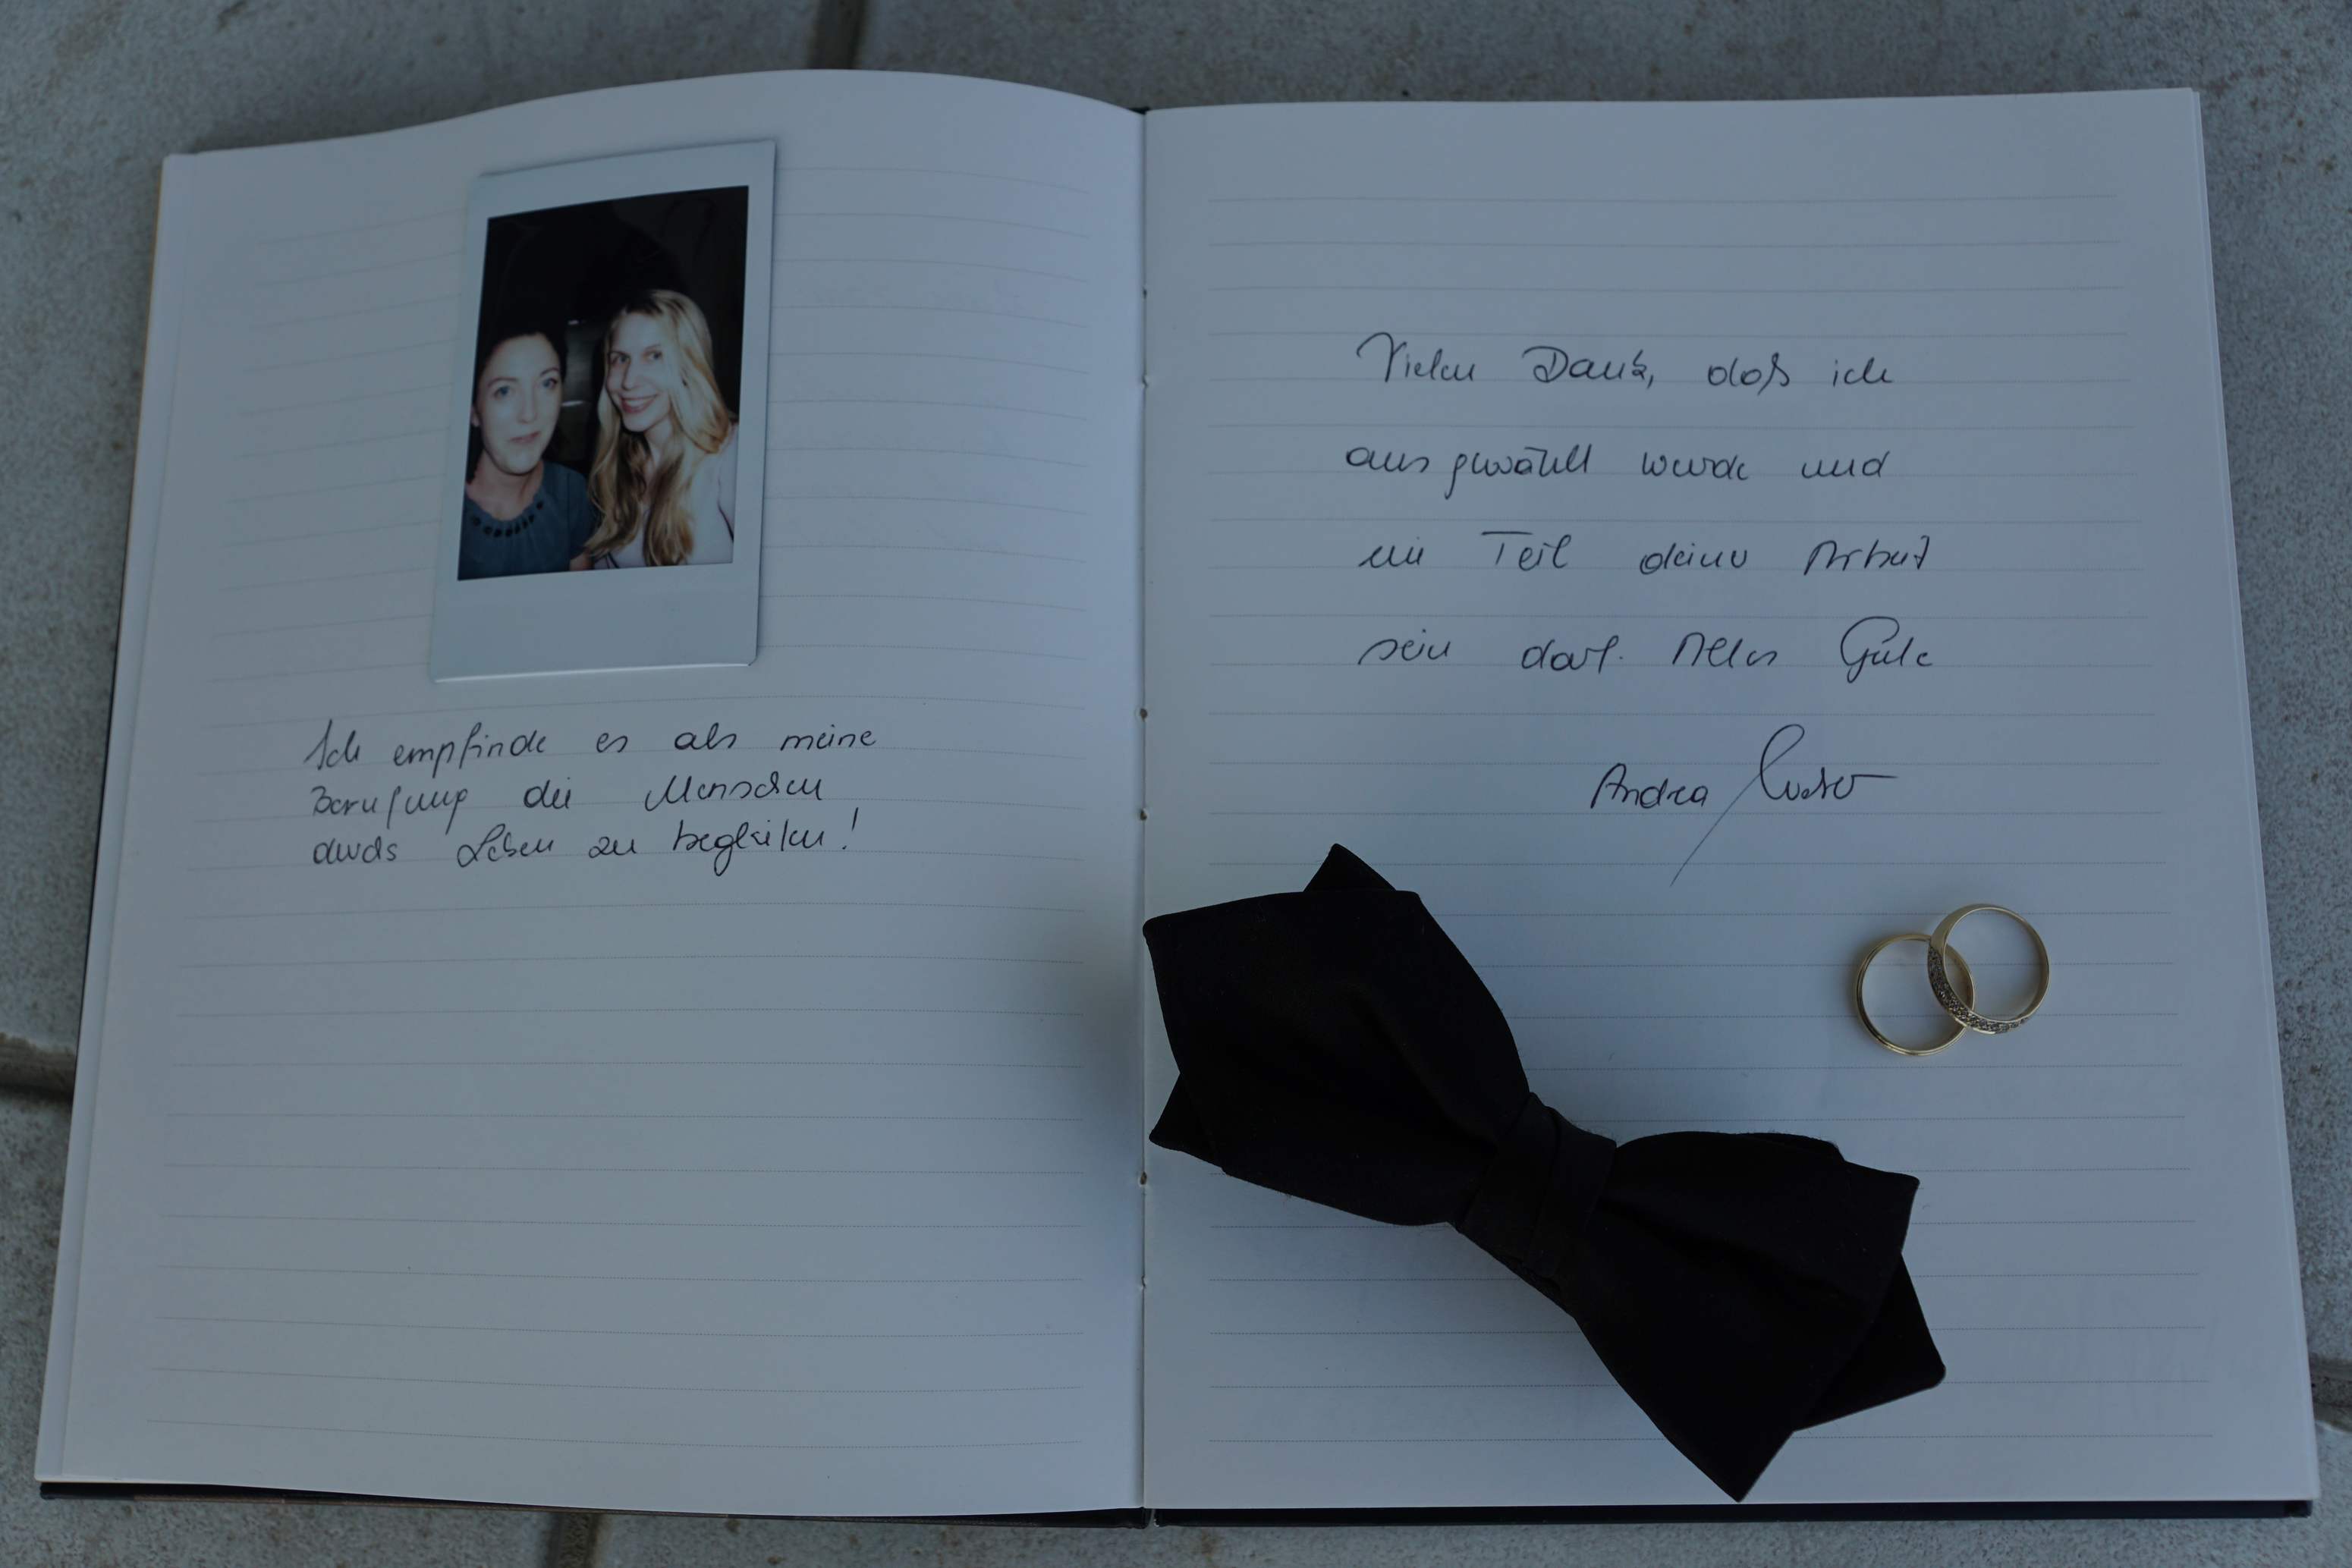 Ich empfinde es als meine
Berufung die Menschen
durchs Leben zu begleiten!
Vielen Dank, daß ich
ausgewählt wurde und
ein Teil deiner Arbeit
sein darf. Alles Gute
Andrea